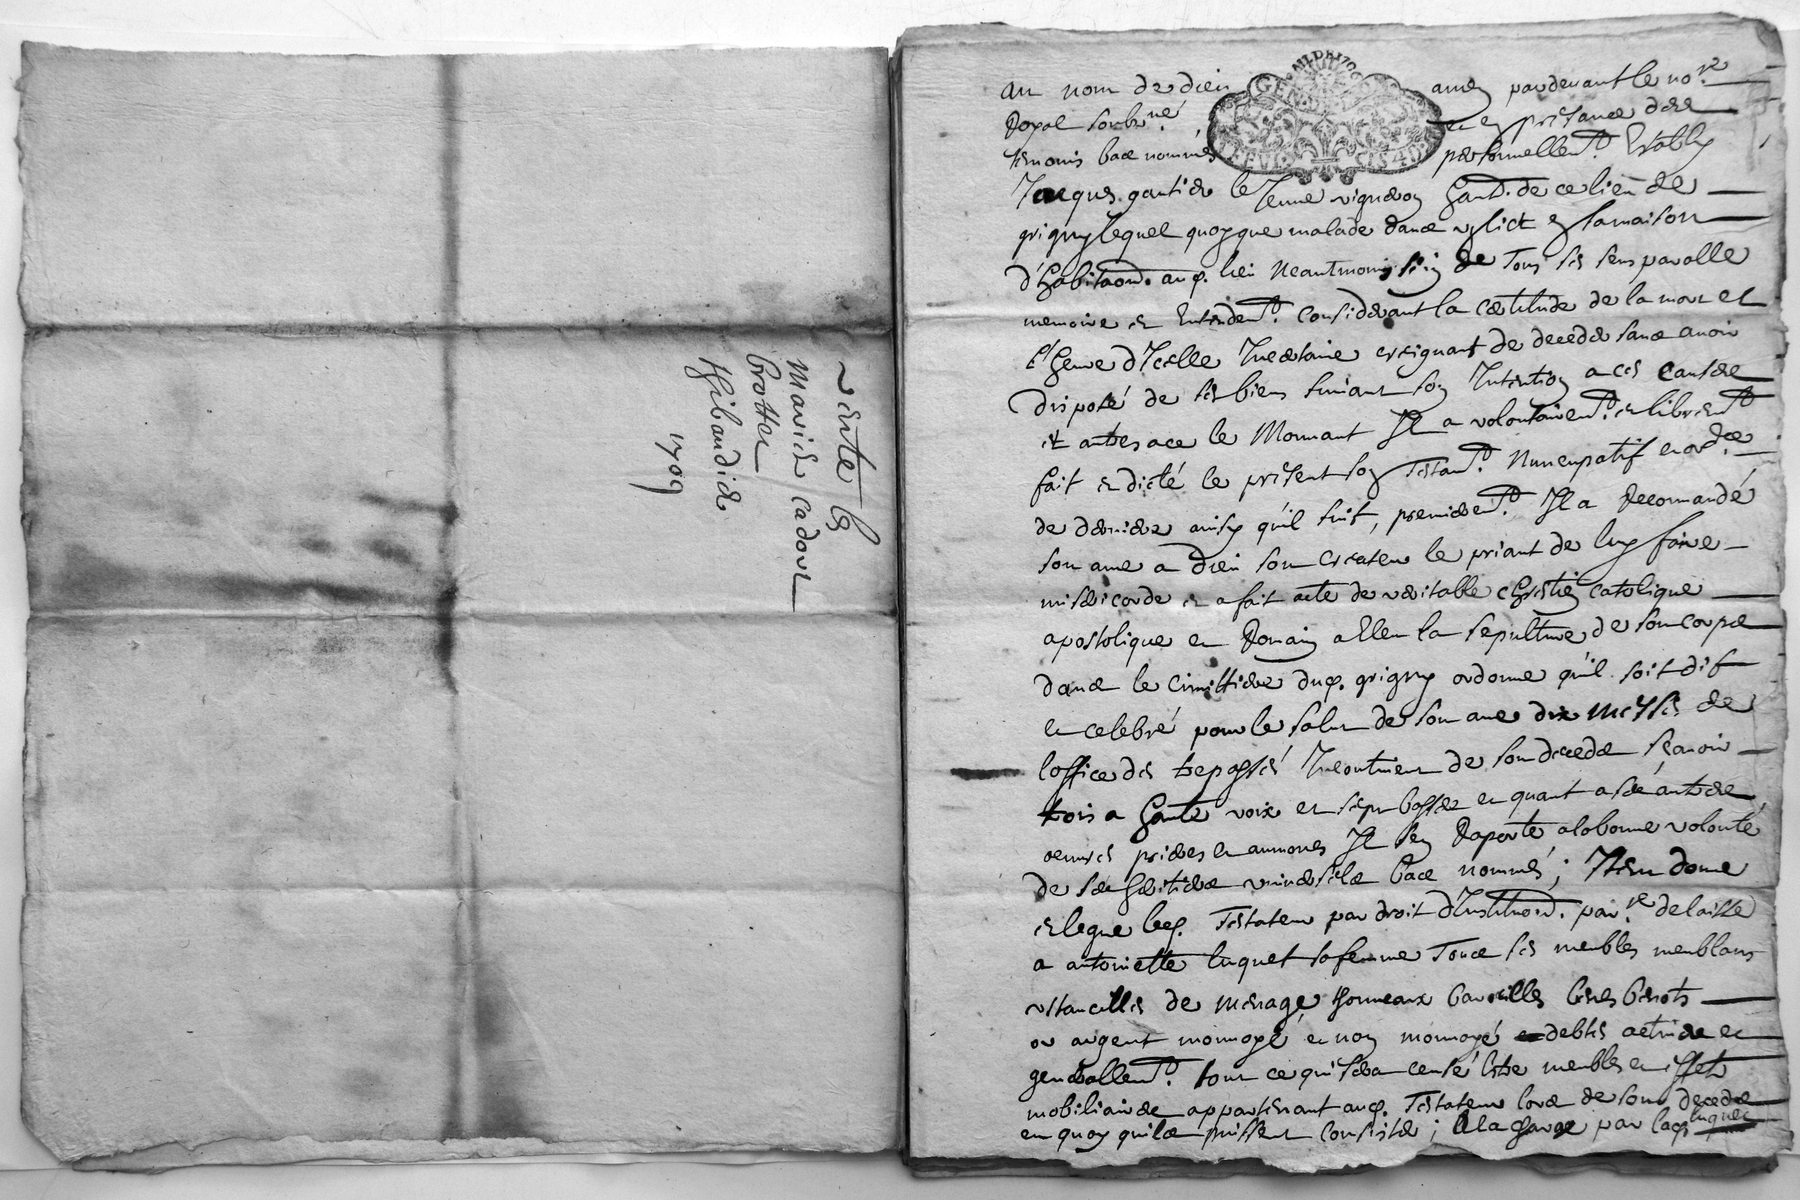 vente
marie cadout
brottel
Thibaudier
1709
au nom de dieu amen pardevant le nore
Royal soubzné et en présance des
temoins bas nommés personnellemt. Estably
Jacques gautier le Jeune vigneron habt. de ce lieu de
grigny lequel quoyque malade dans un lict en sa maison
d'habitaon. aud. lieu Neantmoins sain de tous ses sens parolle
memoire et Entendemt. considerant la certitude de la mort et
l'heure d'Icelle Incertaine creignant de deceder sans avoir
disposé de ses biens suivant son Intention a ces causes
et autres a ce le Mouvant Il a volontairemt. et libremt
fait et dicté le présent son Testamt. Nuncupatif et ordce
de derniere ainsy qu'il suit, premieremt. Il a Recomandé
son ame a dieu son createur le priant de luy faire
misericorde et a fait acte de veritable chrestien catolique
apostolique et Romain a Elleu la sepulture de son corps
dans le cimittiere dud. grigny ordonne qu'il soit dit
et celebré pour le salut de son ame dix messes de
l'office des trepassés Incontinent de son deceds sçavoir
trois a haute voix et sept basses et quant a ses autres
oeuvres prieres et aumones Il s'en Raporte a la bonne volonté
de ses heritiers universels bas nommés; Item donne
et legue led. Testateur par droit d'Institution. parre delaisse
a antoinette luquet sa femme Tous ses meubles meublans
ustancilles de menage Tonneaux barrilles benes benots
or argent monnoyé et non monnoyé et debtes actives et
generallemt. tout ce qui sera censé Estre meubles et effets
mobiliaires appartenant aud. Testateur lors de son deceds
en quoy qu'ils puissent consister; A la charge par lad. luquet